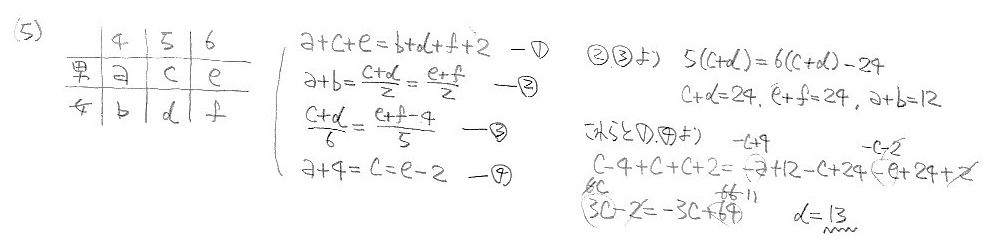 (5)
4 5 6
男 a c e
女 b d f
a+c+e=b+d+f+2 —①
a+b=\frac{c+d}{2}=\frac{e+f}{2} —②
\frac{c+d}{6}=\frac{e+f-4}{5} —③
a+4=c=e-2 —④
②③より 5(c+d)=6(c+d)-24
c+d=24, e+f=24, a+b=12
これらと①,④より
-c+4 -c-2
c-4+c+c+2=-a+12-c+24-e+24+2
6c 66 11
3c-2=-3c+64 d=13